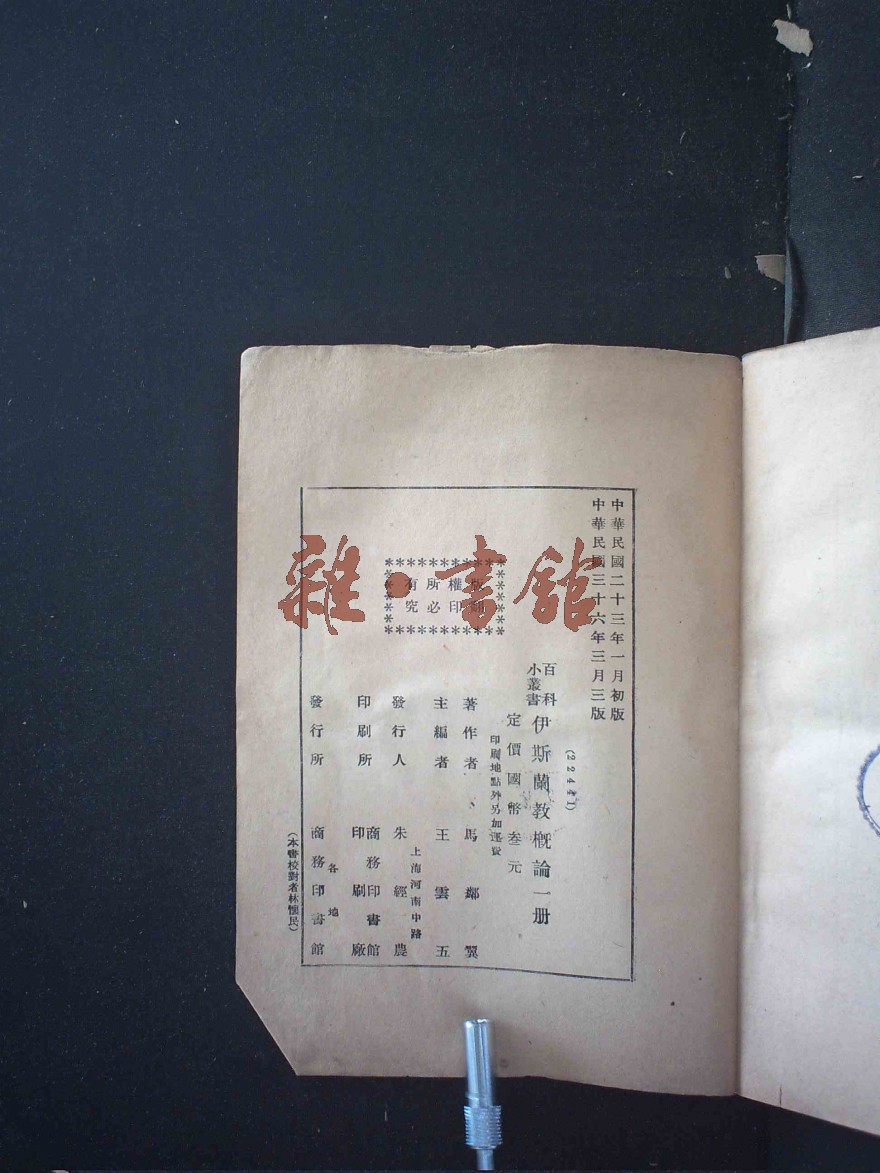 中華民國二十三年一月初版
中華民國三十六年三月三版
(22441)
百科
小叢書
伊斯蘭教概論一册
定價國幣叁元
印刷地點外另加運費
版權所有
印必究
著作者 馬鄰翼
主編者 王雲五
上海河南中路
發行人 朱經農
印刷所 商務印書館
印刷廠
各地
發行所 商務印書館
(本書校對者林懷民)
雜·書館